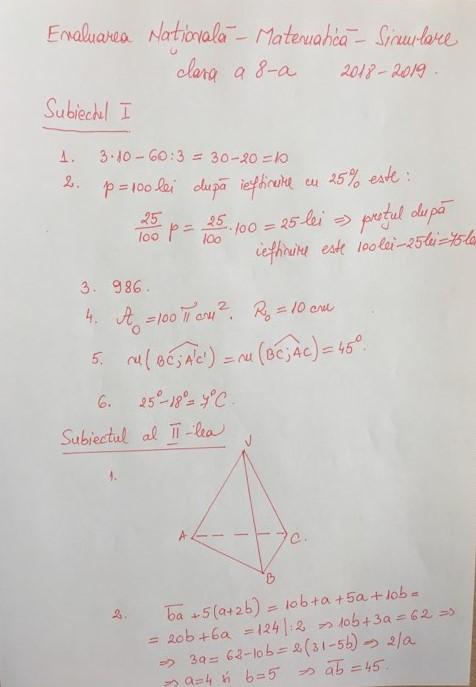 Evaluarea Națională - Matematică - Simulare
clasa a 8-a 2018-2019.
Subiectul I
1. 3·10-60:3 = 30-20=10
2. p=100 lei după ieftinire cu 25% este:
25/100 p = 25/100·100 = 25 lei ⇒ prețul după
ieftinire este 100lei-25lei=75lei
3. 986.
4. A₀=100π cm². R₀=10 cm
5. m(BC;A'C') = m(BC;AC) = 45°.
6. 25°-18°= 7°C.
Subiectul al II-lea
1.
V
A
C.
B
2. ba + 5(a+2b) = 10b+a+5a+10b=
= 20b+6a = 124 |:2 ⇒ 10b+3a=62 ⇒
⇒ 3a= 62-10b = 2(31-5b) ⇒ 2/a
⇒ a=4 și b=5 ⇒ ab = 45.